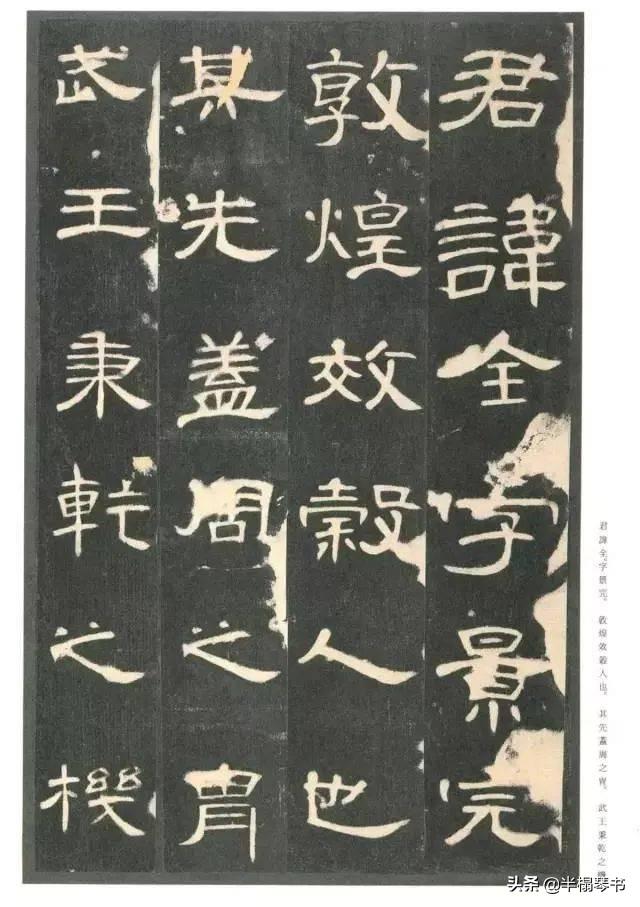 君諱全字景完
敦煌效穀人也
其先蓋周之胄
武王秉乾之機
君諱全。字景完。敦煌效穀人也。其先蓋周之胄。武王秉乾之機
头条 @半榻琴书